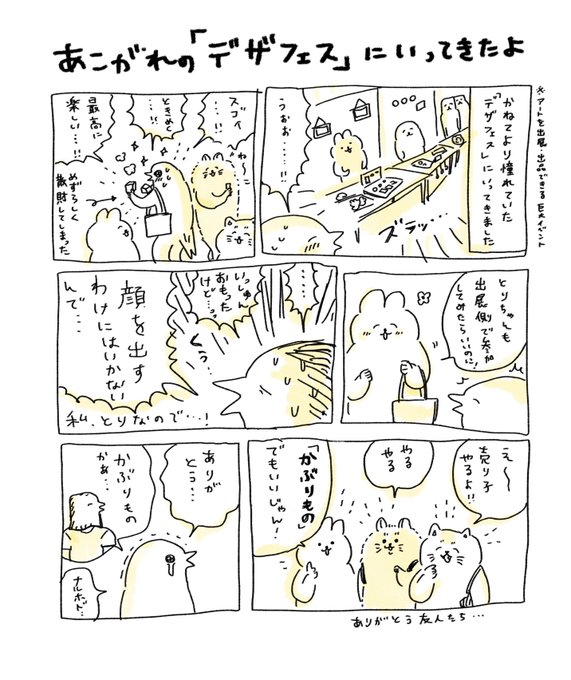 あこがれの「デザフェス」にいってきたよ
※アートを出展・出品できる巨大イベント
かねてより憧れていた
「デザフェス」にいってきました
ズラッ…
うおぉ……!!
スゴイ
…!!
ね〜
ときめく
…!!
最高に
楽しい…!!
めずらしく
散財してしまった
とりちゃんも
出展側で参加
してみたらいいのに!
……
いっしゅん
おもった
けど…っ
くぅ…
顔を出す
わけにはいかない
んで…
私、とりなので…!
え〜〜
売り子
やるよ!!
やる
やる
「かぶりもの」
でもいいじゃん!
ありがとう友人たち…
ありが
とう…
かぶりもの
かぁ…
ナルホド…